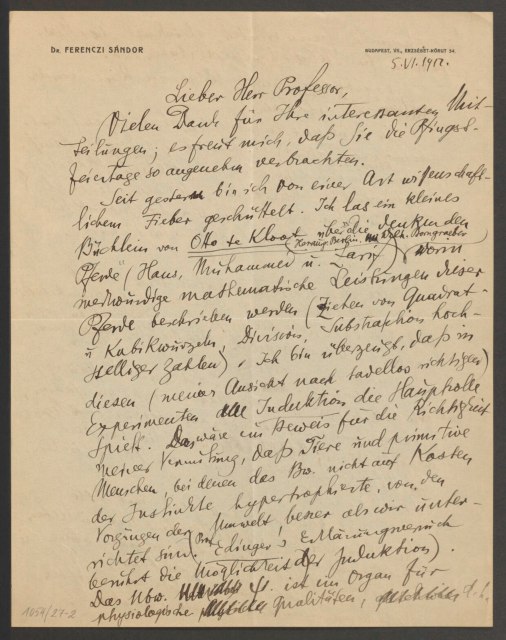 Dr. FERENCZI SÁNDOR
BUDAPEST, VII., ERZSÉBET-KÖRUT 54.
5.VI.1912.
Lieber Herr Professor,
Vielen Dank für Ihre interessanten Mit-
teilungen; es freut mich, daß Sie die Pfingst-
feiertage so angenehm verbrachten.
Seit gestern bin ich von einer Art wissenschaft-
lichem Fieber geschüttelt. Ich las ein kleines
Büchlein von Otto te Kloot über die denkenden
(Berlin, Wilh. Borngraeber)
Pferde (Hans, Muhammed u. Zarif), worin
merkwürdige mathematische Leistungen dieser
Pferde beschrieben werden (Ziehen von Quadrat-
u Kubikwurzeln, Division, Substraktion hoch-
stelliger Zahlen). Ich bin überzeugt, daß in
diesen (meiner Ansicht nach tadellos richtigen)
Experimenten die Induktion die Hauptrolle
spielt. Das wäre ein Beweis für die Richtigkeit
meiner Vermutung, daß Tiere und primitive
Menschen, bei denen das Bw. nicht auf Kosten
der Instinkte hypertrophierte, von den
Vorgängen der Umwelt besser als wir unter-
richtet sind. (Prof. Edinger's Erklärungsversuch
berührt die Möglichkeit der Induktion).
Das Ubw. ist ein Organ für
physiologische Qualitäten, d.h.
1054/27-2